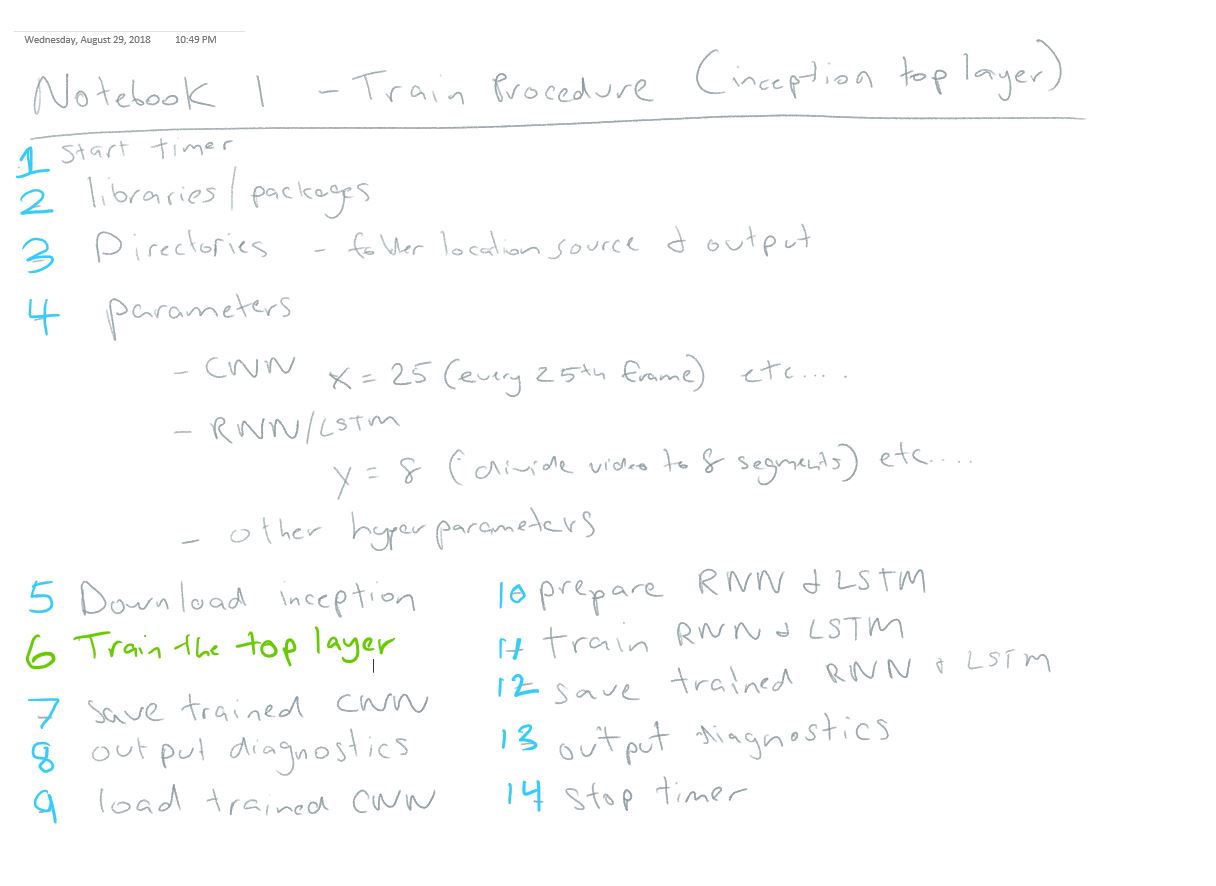 Wednesday, August 29, 2018 10:49 PM
Notebook 1 - Train Procedure (inception top layer)
1 Start timer
2 libraries/packages
3 Directories - folder location source & output
4 parameters
- CNN x = 25 (every 25th frame) etc....
- RNN/LSTM
y = 8 (divide video to 8 segments) etc....
- other hyperparameters
5 Download inception
6 Train the top layer
7 save trained CNN
8 output diagnostics
9 load trained CNN
10 prepare RNN & LSTM
11 train RNN & LSTM
12 save trained RNN & LSTM
13 output diagnostics
14 stop timer